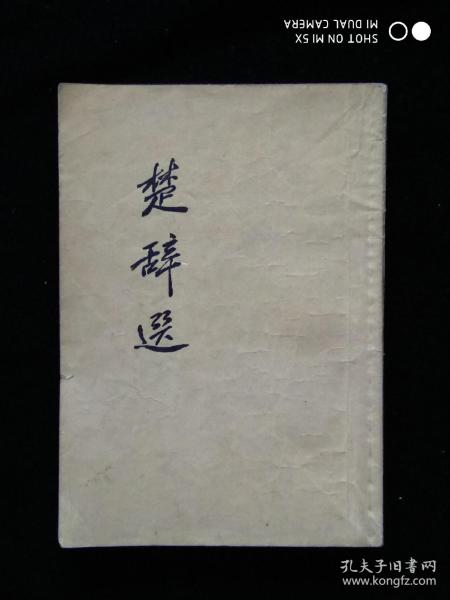 SHOT ON MI 5X
MI DUAL CAMERA
楚辞選
孔夫子旧书网
www.kongfz.com